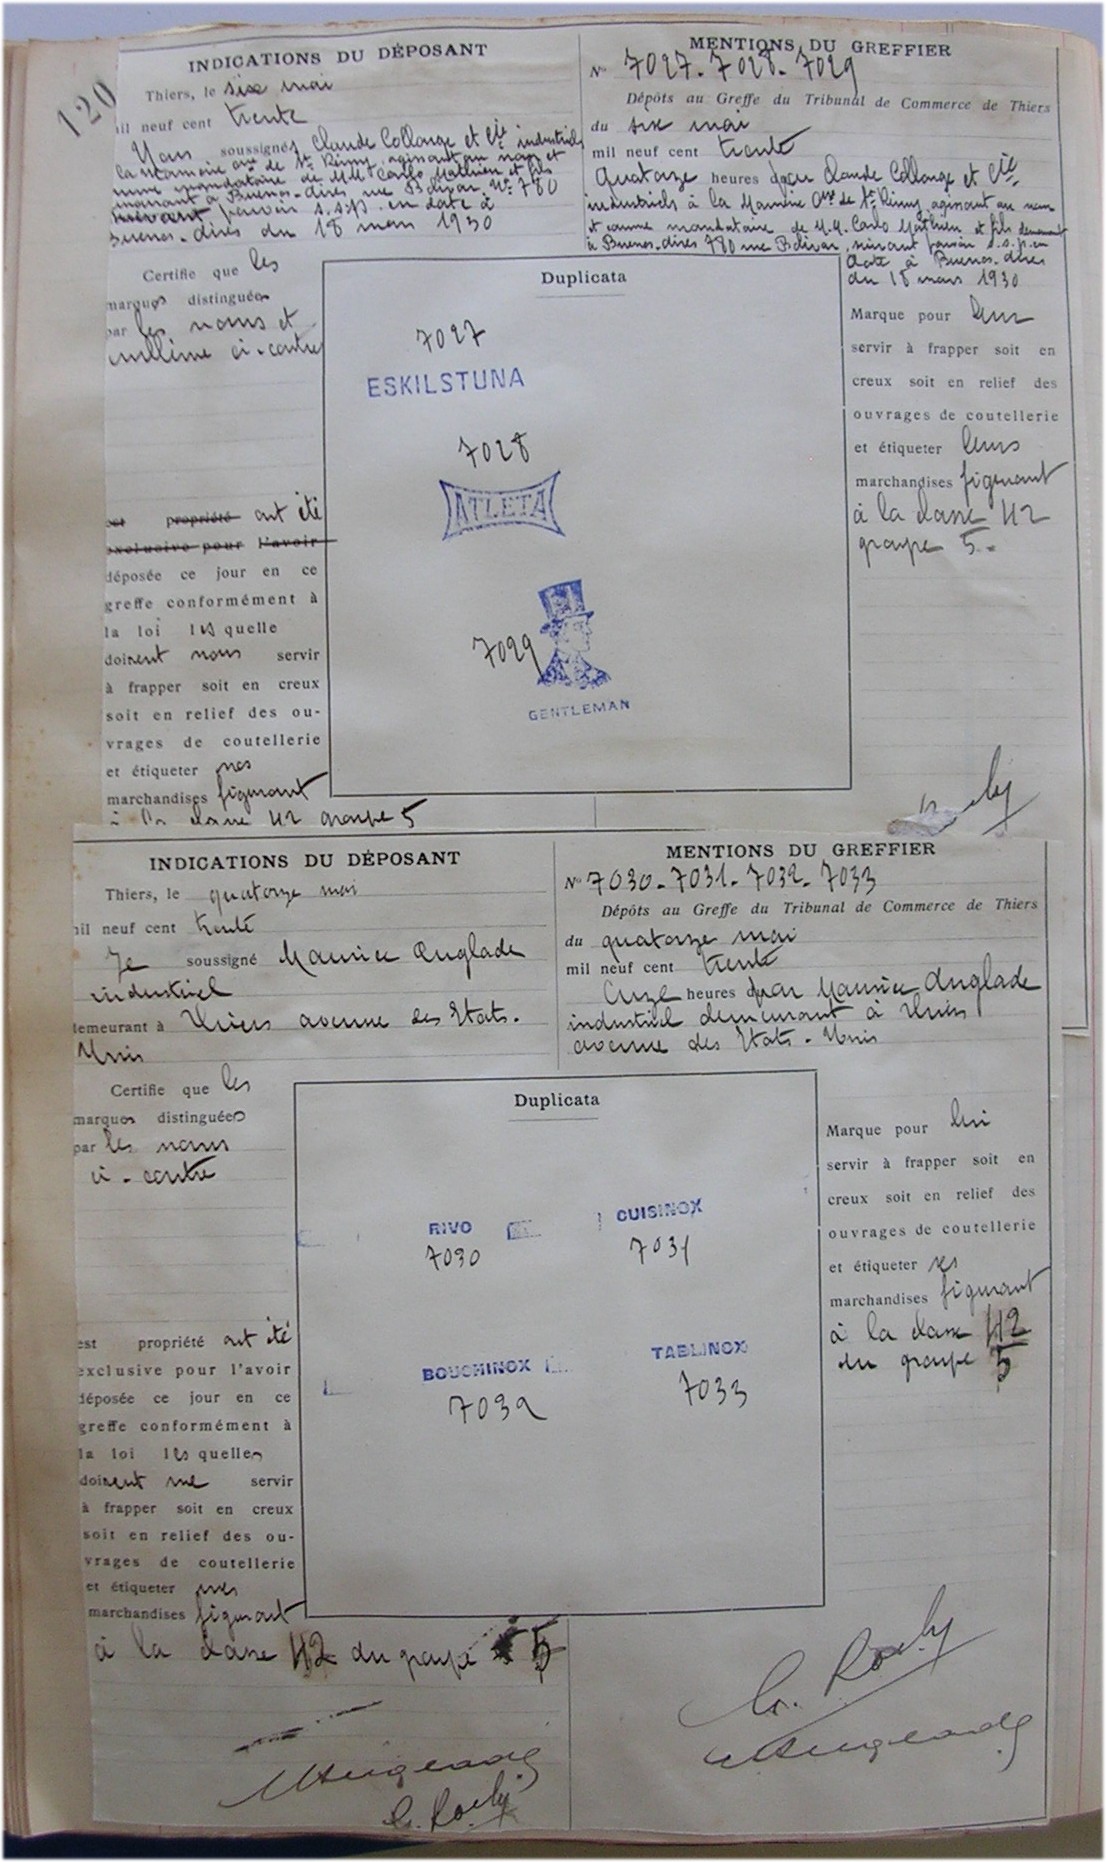 120
INDICATIONS DU DÉPOSANT
Thiers, le six mai
mil neuf cent trente
Nous soussignés Claude Collange et Cie industriels
la Monnerie cne de St Rémy, agissant au nom et
comme mandataire de M.M. Carlo Mathieu et fils
demeurant à Buenos-Aires rue Bolivar No 780
suivant pouvoir s.s.p. en date à
Buenos-Aires du 18 mars 1930
Certifie que les
marques distinguées
par les noms et
emblème ci-contre
est propriété ont été
exclusive pour l'avoir
déposée ce jour en ce
greffe conformément à
la loi lesquelle
doivent nous servir
à frapper soit en creux
soit en relief des ou-
vrages de coutellerie
et étiqueter nos
marchandises figurant
à la classe 42 groupe 5
Duplicata
7027
ESKILSTUNA
7028
ATLETA
7029
GENTLEMAN
MENTIONS DU GREFFIER
No 7027-7028-7029
Dépôts au Greffe du Tribunal de Commerce de Thiers
du six mai
mil neuf cent trente
Quatorze heures par Claude Collange et Cie
industriels à la Monnerie cne de St Rémy, agissant au nom
et comme mandataire de M.M. Carlo Mathieu et fils demeurant
à Buenos-Aires 780 rue Bolivar, suivant pouvoir s.s.p. en
date à Buenos-Aires
du 18 mars 1930
Marque pour leur
servir à frapper soit en
creux soit en relief des
ouvrages de coutellerie
et étiqueter leurs
marchandises figurant
à la classe 42
groupe 5.-
INDICATIONS DU DÉPOSANT
Thiers, le quatorze mai
mil neuf cent trente
Je soussigné Maurice Anglade
industriel
demeurant à Thiers avenue des Etats-
Unis
Certifie que les
marques distinguées
par les noms
ci-contre
est propriété ont été
exclusive pour l'avoir
déposée ce jour en ce
greffe conformément à
la loi lesquelles
doivent me servir
à frapper soit en creux
soit en relief des ou-
vrages de coutellerie
et étiqueter mes
marchandises figurant
à la classe 42 du groupe 5
Duplicata
RIVO
7030
CUISINOX
7031
BOUCHINOX
7032
TABLINOX
7033
MENTIONS DU GREFFIER
No 7030-7031-7032-7033
Dépôts au Greffe du Tribunal de Commerce de Thiers
du quatorze mai
mil neuf cent trente
Onze heures par Maurice Anglade
industriel demeurant à Thiers
avenue des Etats-Unis
Marque pour lui
servir à frapper soit en
creux soit en relief des
ouvrages de coutellerie
et étiqueter ses
marchandises figurant
à la classe 42
du groupe 5